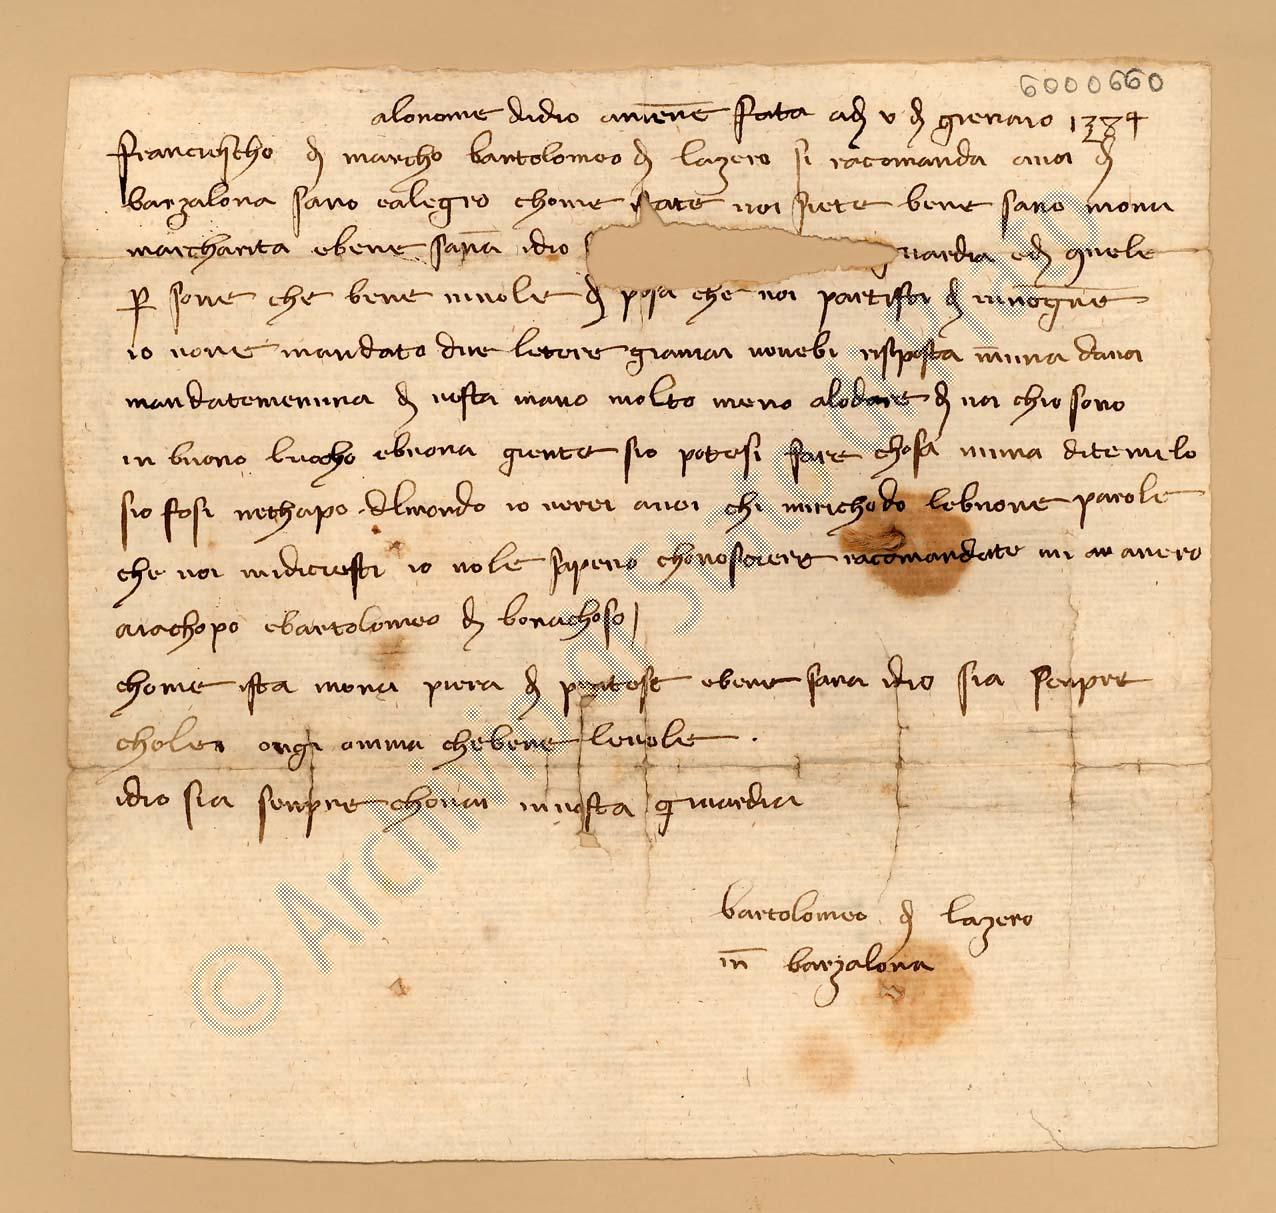 6000660
alonome didio amene fata ad v d gienaio 1384
franciescho d marcho bartolomeo d lazero si racomanda avoi d
barzalona sano ealegro chome state voi siete bene sano mona
marcharita ebene sana idio guardia ed quele
per sone che bene vuole d posa che voi partisti d
io vone mandato due letere giamai nonebi risposta niuna davoi
mandatemenuna d vosta mano molto meno alodare d voi chio sono
in buono luocho ebuona giente sio potesi fare chosa niuna ditemelo
sio fosi nechapo delmondo io verei avoi chi mirichodo lebuone parole
che voi midiciesti io nole sapeno chonosciere racomandate mi
arachopo ebartolomeo d bonachoso
chome ista mona piera d ebene sana idio sia senpre
cholei ongi omina chebene levole .
idio sia senpre chonoi invosta guardia
bartolomeo d lazero
in barzalona
© Archivio di Stato di Prato